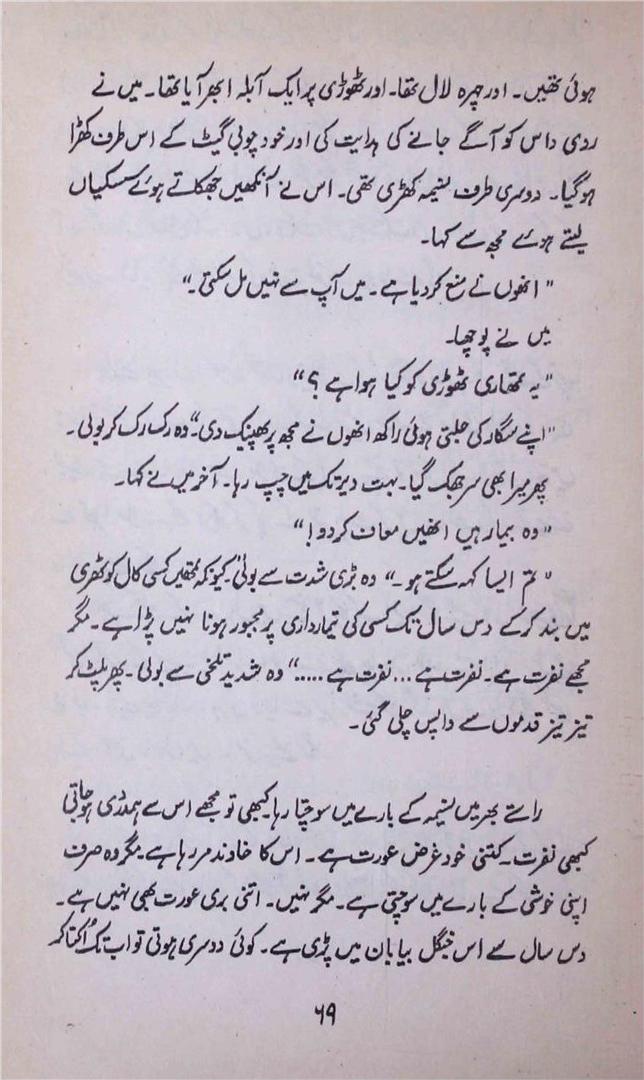 ہوئی تھیں۔ اور چہرہ لال تھا۔ اور ٹھوڑی پر ایک آبلہ ابھر آیا تھا۔ میں نے
ردی داس کو آگے جانے کی ہدایت کی اور خود چوبی گیٹ کے اس طرف کھڑا
ہو گیا۔ دوسری طرف نسیمہ کھڑی تھی۔ اس نے آنکھیں جھکاتے ہوئے سسکیاں
لیتے ہوئے مجھ سے کہا۔
"انھوں نے منع کر دیا ہے۔ میں آپ سے نہیں مل سکتی۔"
میں نے پوچھا۔
"یہ تمھاری ٹھوڑی کو کیا ہوا ہے؟"
"اپنے سگار کی جلتی ہوئی راکھ انھوں نے مجھ پر پھینک دی۔" وہ رک رک کر بولی۔
پھر میرا بھی سر جھک گیا۔ بہت دیر تک میں چپ رہا۔ آخر میں نے کہا۔
"وہ بیمار ہیں انھیں معاف کر دو!"
"تم ایسا کہہ سکتے ہو۔" وہ بڑی شدت سے بولی "کیونکہ تمھیں کسی کال کوٹھری
میں بند کر کے دس سال تک کسی کی تیمارداری پر مجبور ہونا نہیں پڑا ہے۔ مگر
مجھے نفرت ہے۔ نفرت ہے... نفرت ہے....." وہ شدید تلخی سے بولی۔ پھر پلٹ کر
تیز تیز قدموں سے واپس چلی گئی۔
راستے بھر میں نسیمہ کے بارے میں سوچتا رہا کبھی تو مجھے اس سے ہمدردی ہو جاتی
کبھی نفرت۔ کتنی خود غرض عورت ہے۔ اس کا خاوند مر رہا ہے۔ مگر وہ صرف
اپنی خوشی کے بارے میں سوچتی ہے۔ مگر نہیں۔ اتنی بری عورت بھی نہیں ہے۔
دس سال سے اس جنگل بیابان میں پڑی ہے۔ کوئی دوسری ہوتی تو اب تک اُکتا کر
۶۹